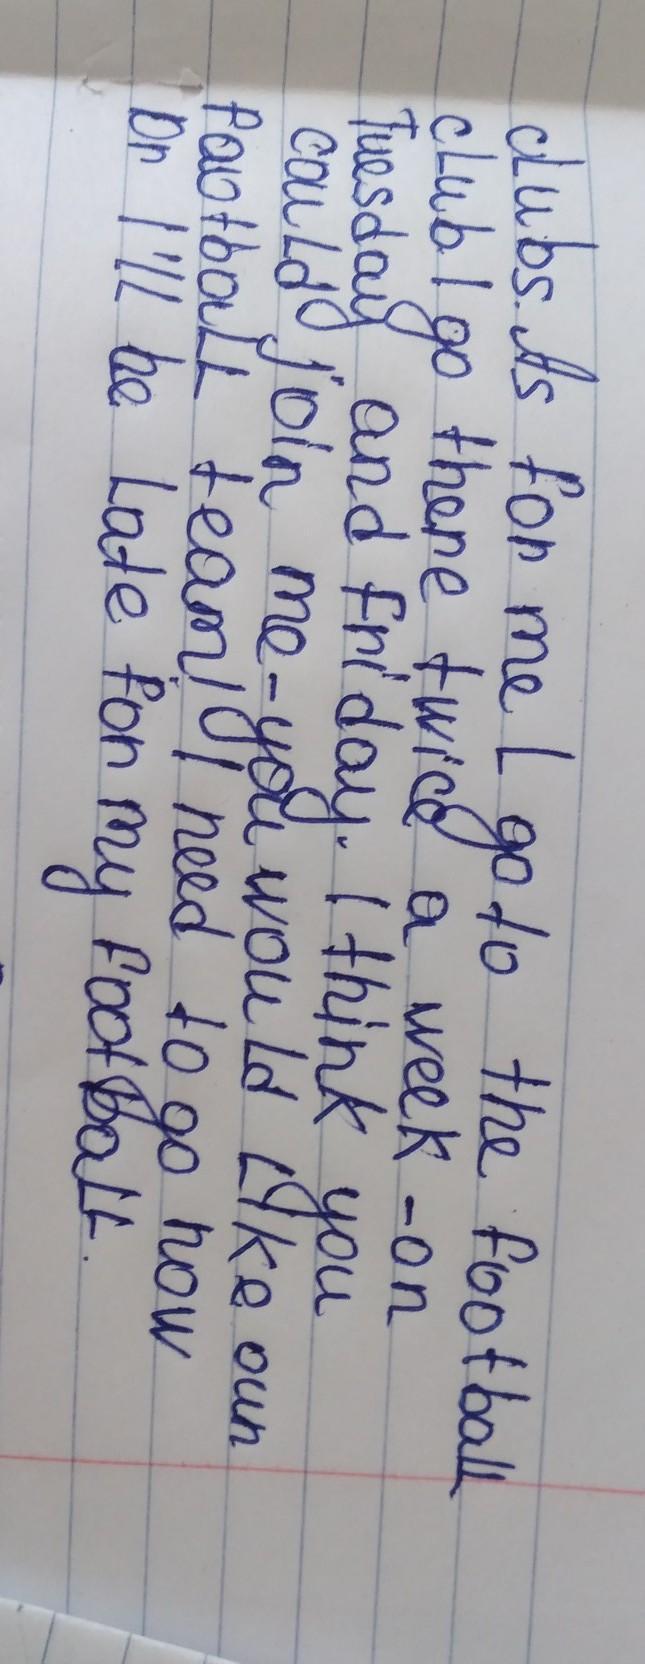 clubs. As for me I go to the football
club I go there twice a week - on
Tuesday and Friday. I think you
could join me - you would like our
football team! I need to go now
or I'll be late for my football.